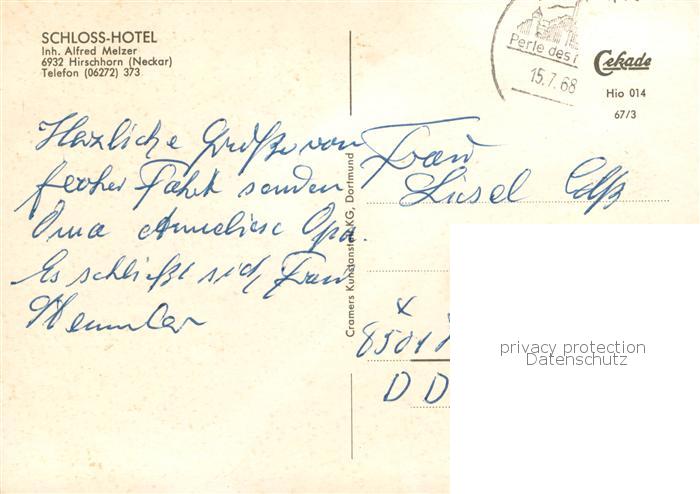 SCHLOSS-HOTEL
Inh. Alfred Melzer
6932 Hirschhorn (Neckar)
Telefon (06272) 373
Perle des
15.7.68
Cekade
Hio 014
67/3
Herzliche Grüße von
froher Fahrt senden
Oma Anneliese Opa.
Es schließt sich Frau
Cramers Kunstanstalt KG, Dortmund
Frau
Liesel
X
8501
D D
privacy protection
Datenschutz